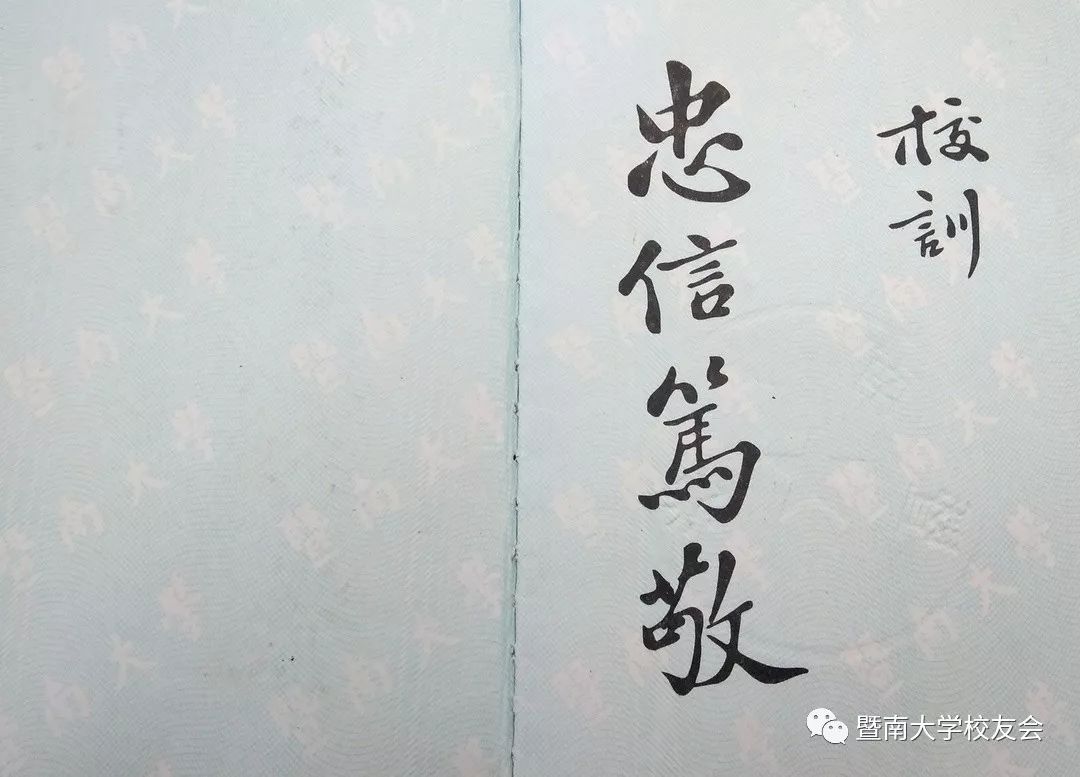 校訓
忠信篤敬
暨南大学校友会